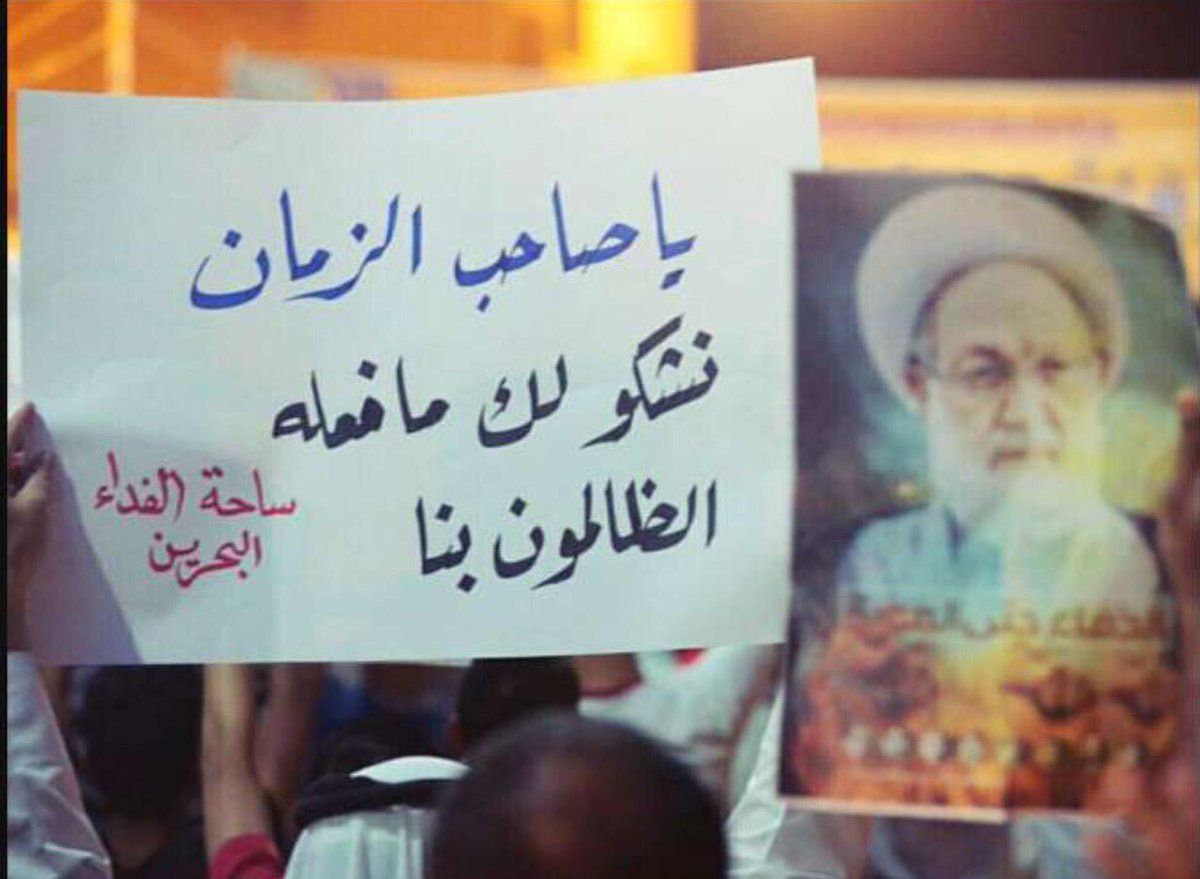 يا صاحب الزمان
نشكو لك ما فعله
الظالمون بنا
ساحة الفداء
البحرين